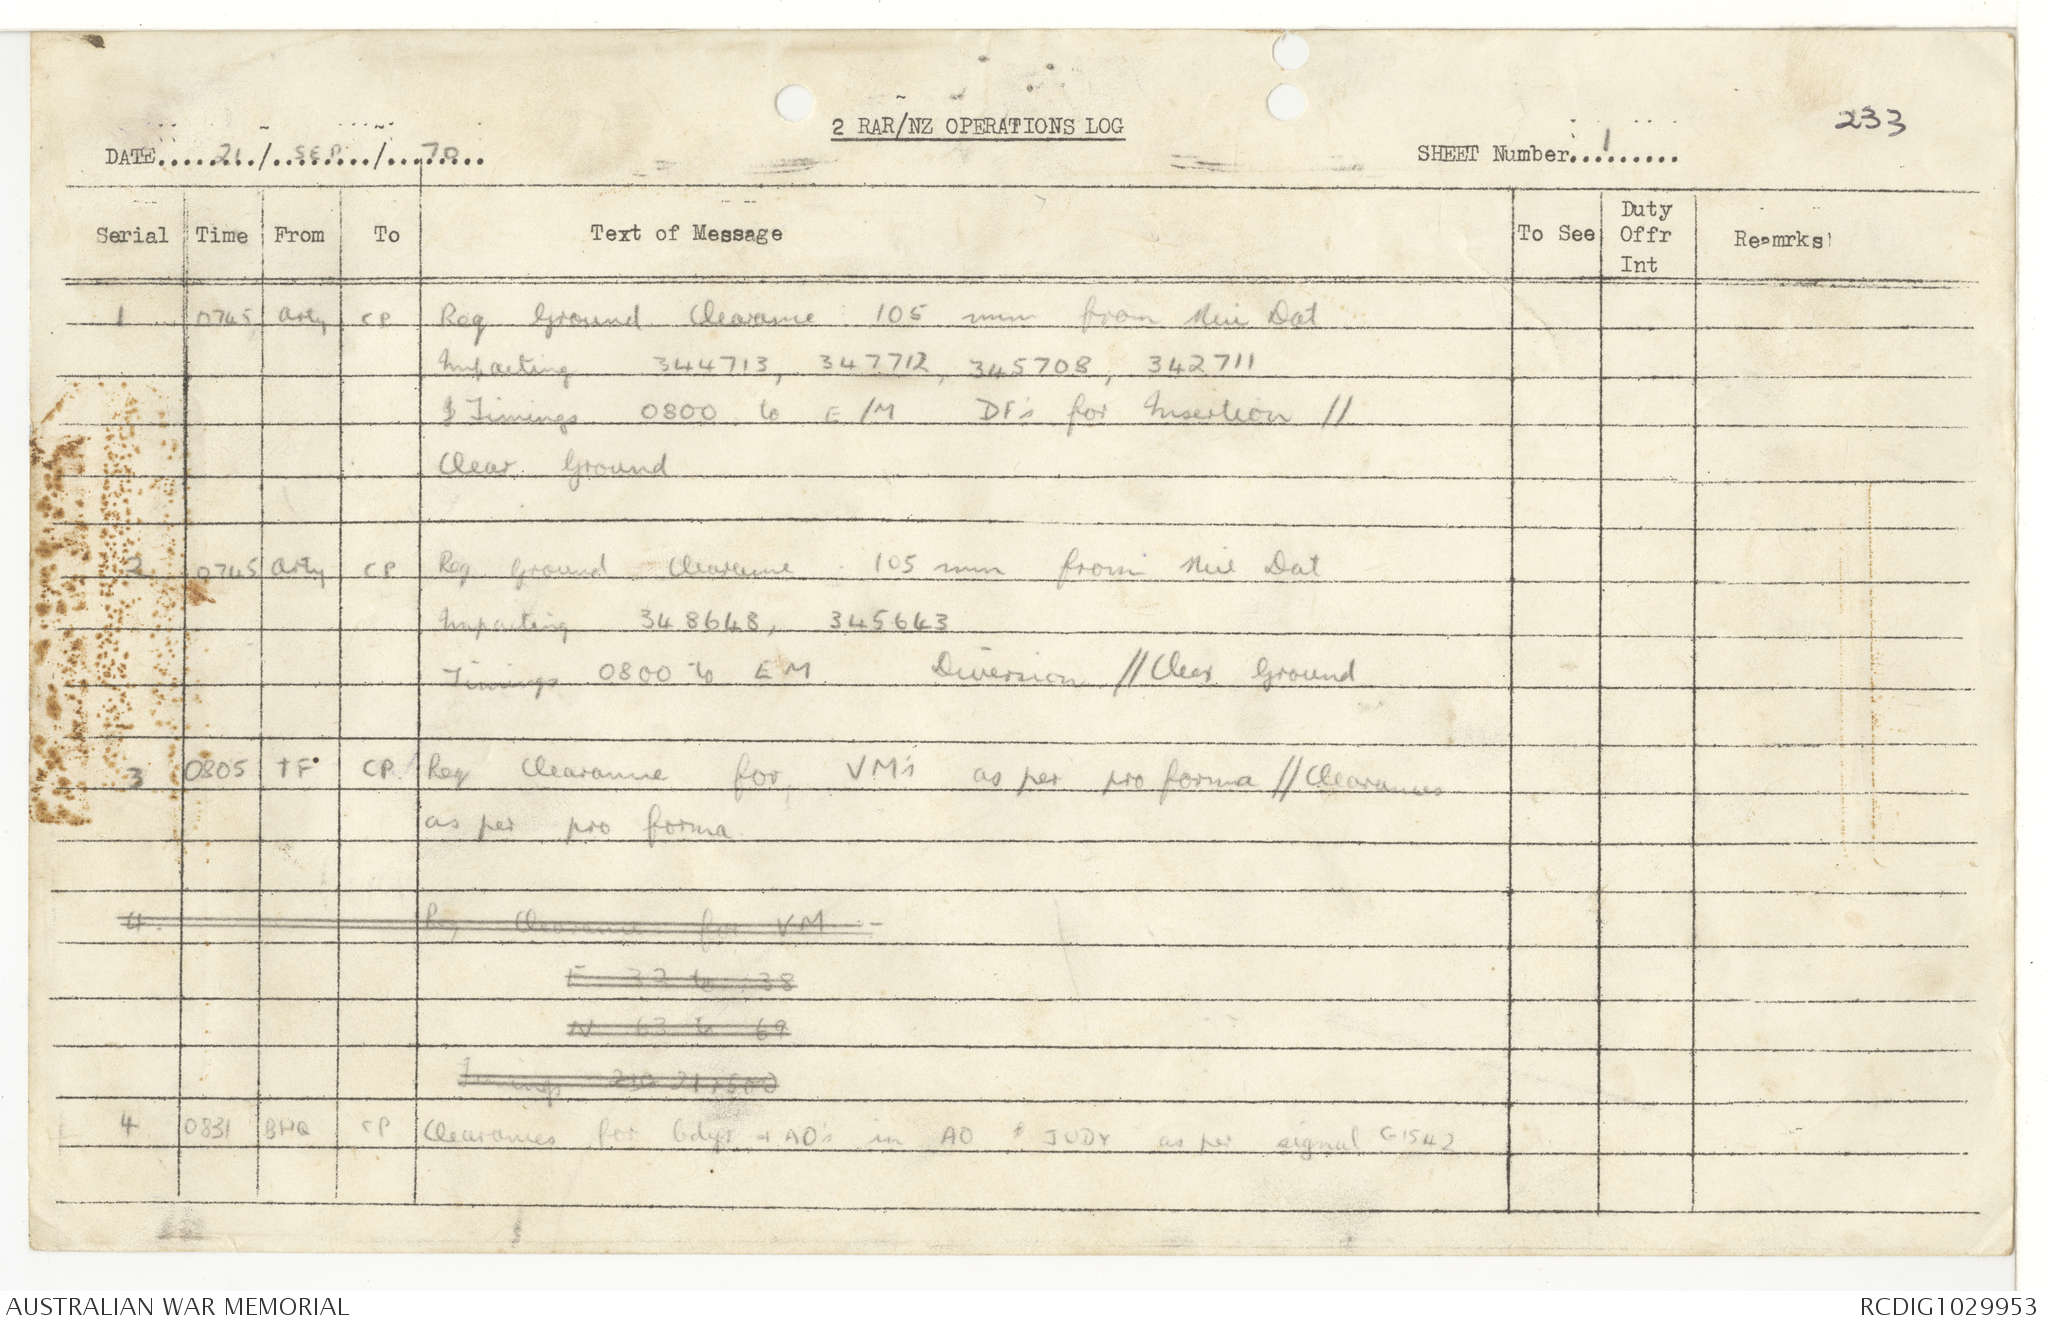 233
2 RAR/NZ OPERATIONS LOG
DATE.....21./..SEP../...70...
SHEET Number..1.......
Serial Time From To Text of Message To See Duty Offr Int Remrks
1 0745 Arty CP Req Ground Clearance 105 mm from Nui Dat
Impacting 344713, 347712, 345708, 342711
Timings 0800 to E/M DF's for Insertion //
Clear Ground
2 0745 Arty CP Req Ground Clearance 105 mm from Nui Dat
Impacting 348648, 345643
Timings 0800 to EM Diversion // Clear Ground
3 0805 TF CP Req Clearance for VM's as per pro forma // Clearances
as per pro forma
4. Req Clearance for VM -
E 32 to 38
N 63 to 69
Timings
4 0831 BHQ CP Clearances for bdys + AO's in AO JUDY as per signal G1542
AUSTRALIAN WAR MEMORIAL
RCDIG1029953